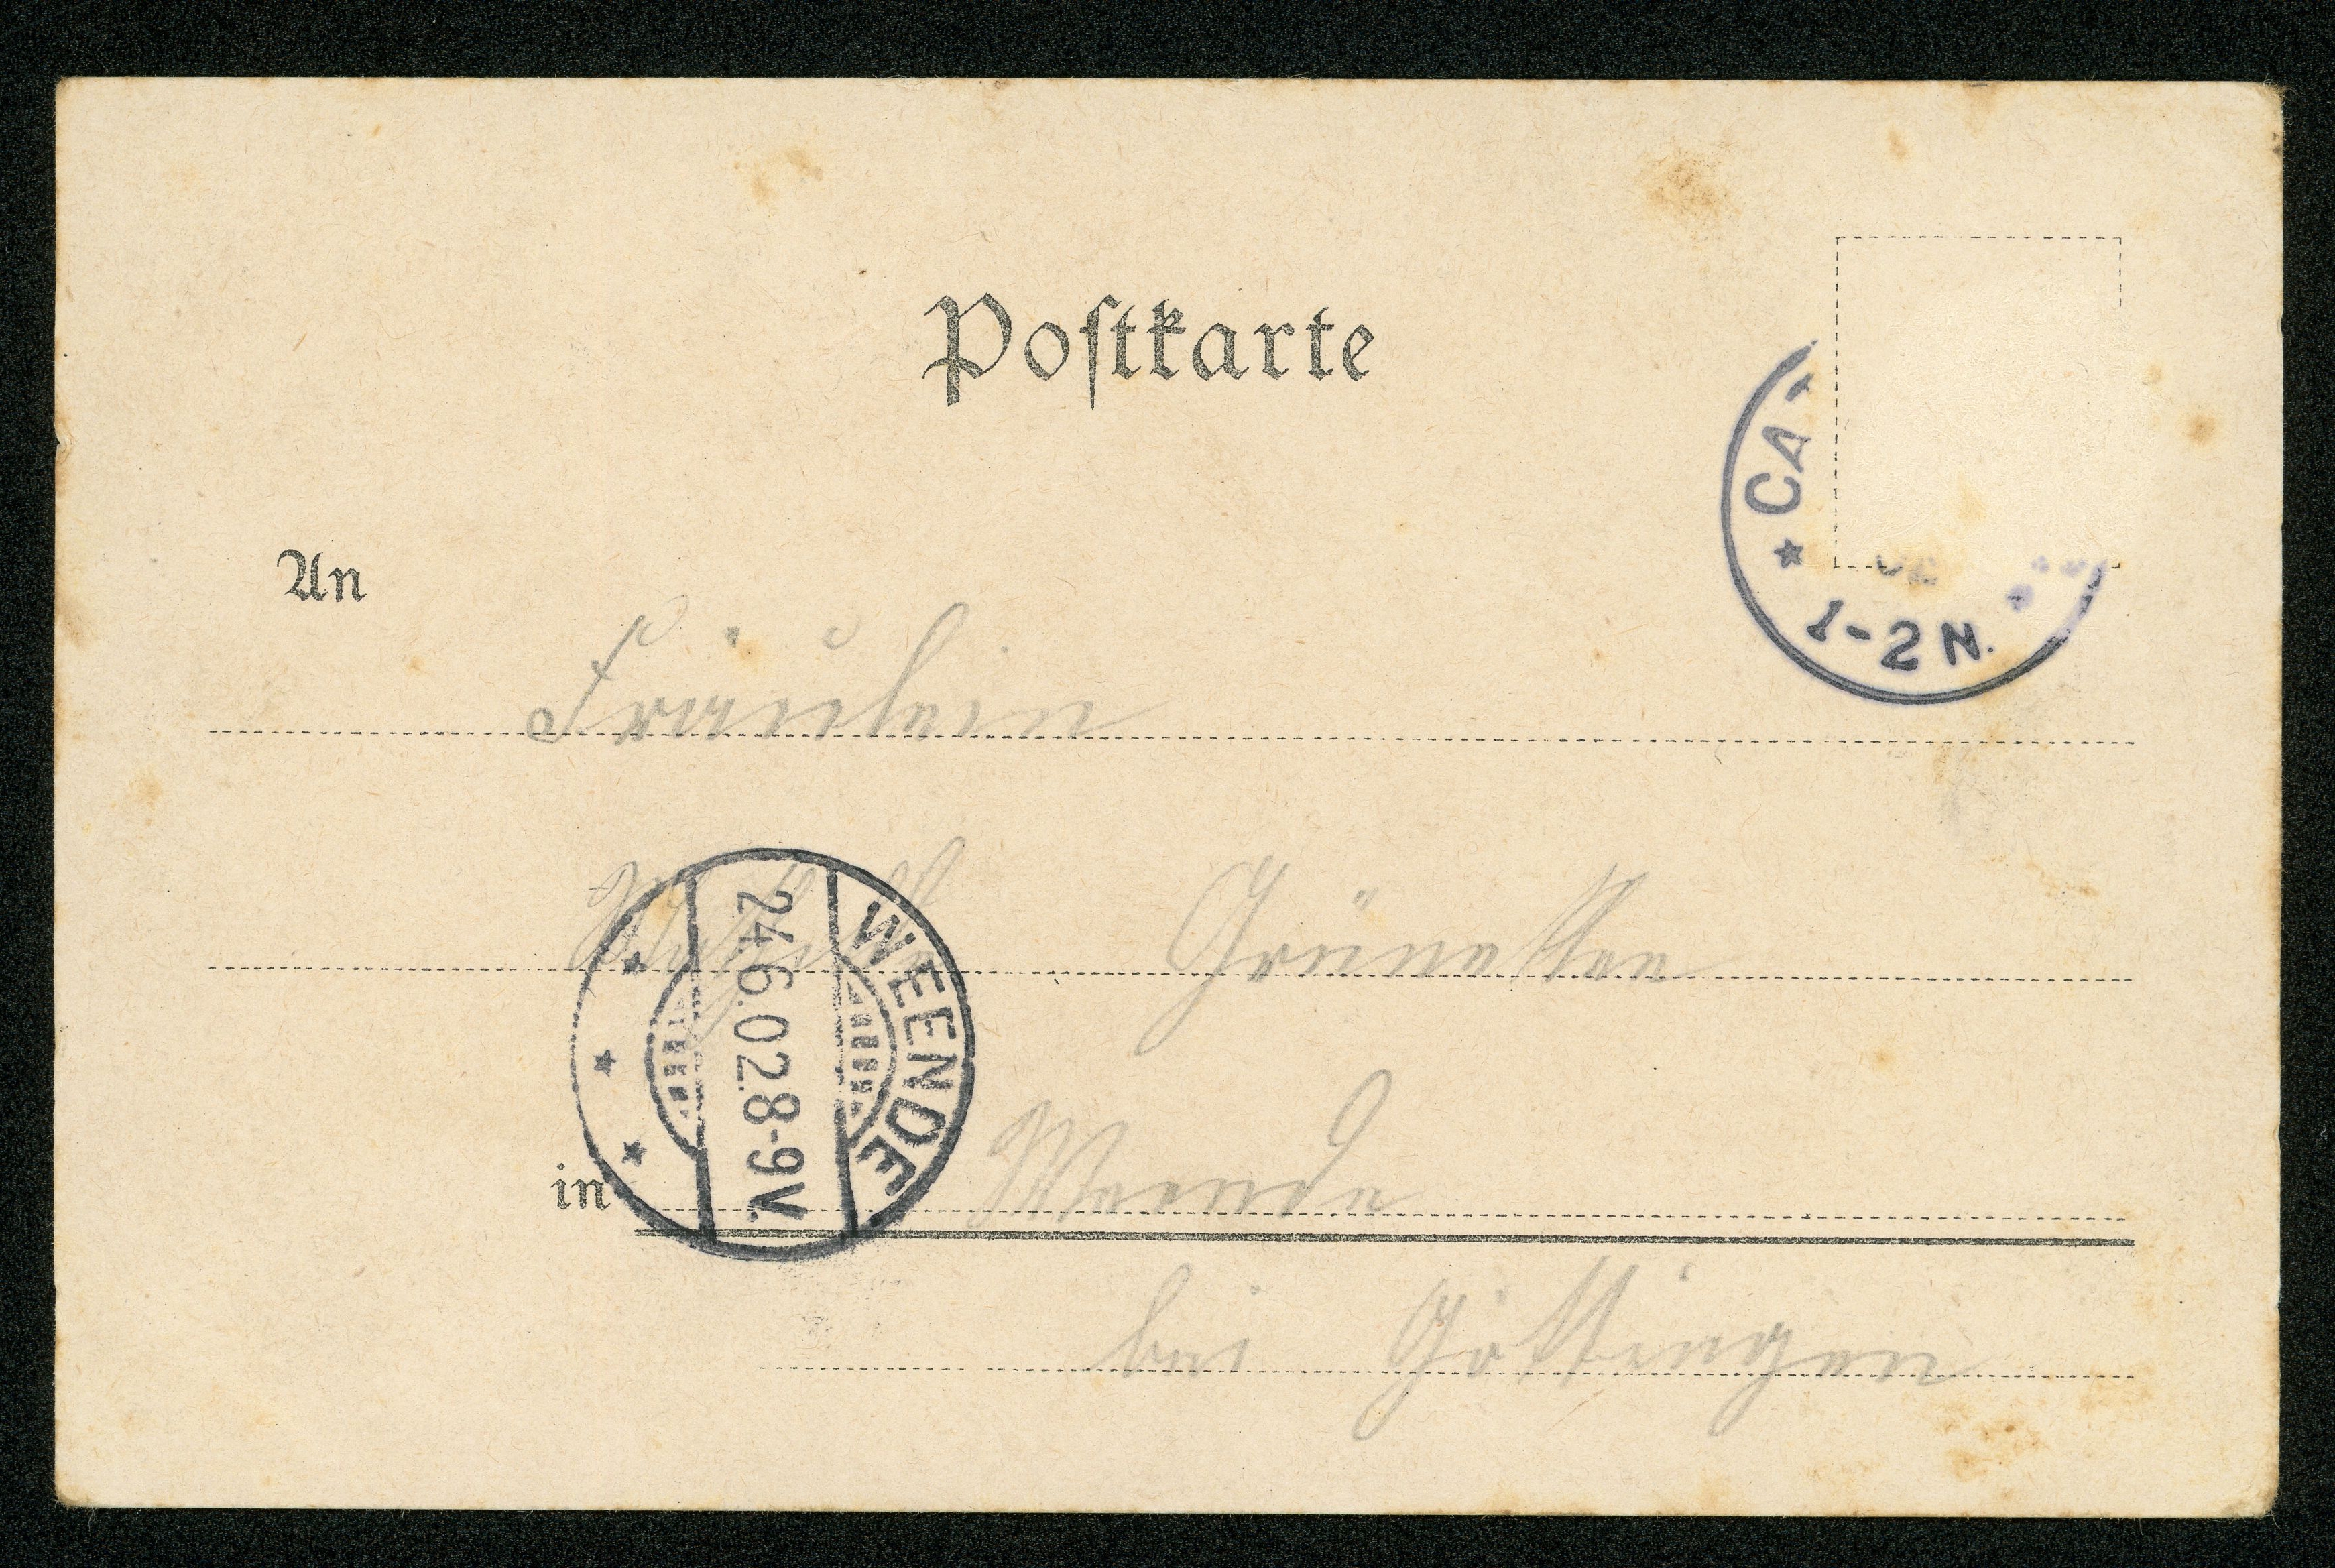 Postkarte
CA
1-2 N.
An
Fräulein
Grüneklee
WEENDE
24.6.02.8-9V.
in Weende
bei Göttingen